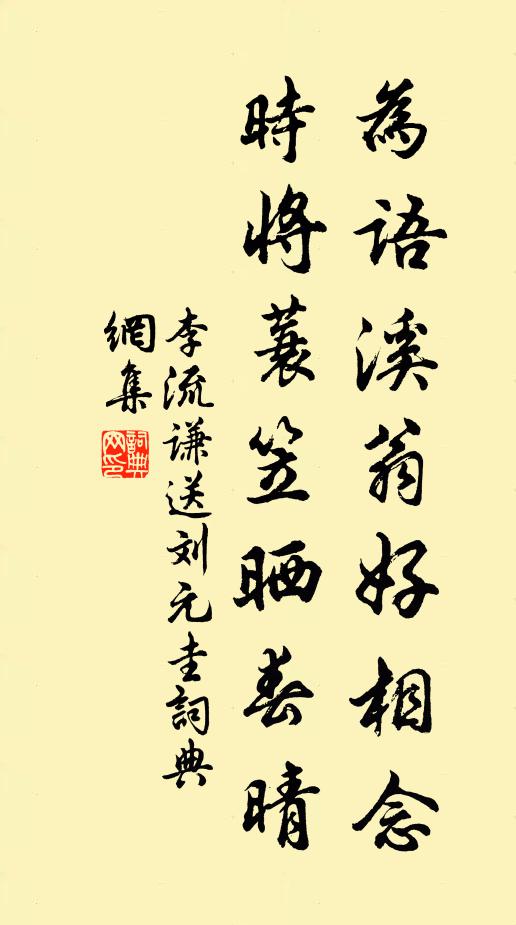 為語溪翁好相念
時將蓑笠晒春晴
李流谦送刘元圭詞典
網集
詞典網印